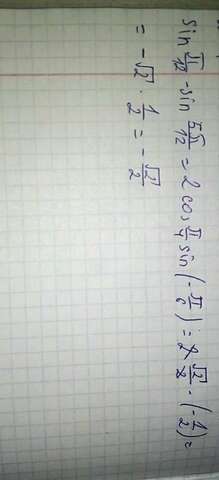 sin π/12 - sin 5π/12 = 2 cos π/4 sin (-π/6) = 2 √2/2 · (-1/2) =
= -√2 · 1/2 = -√2/2